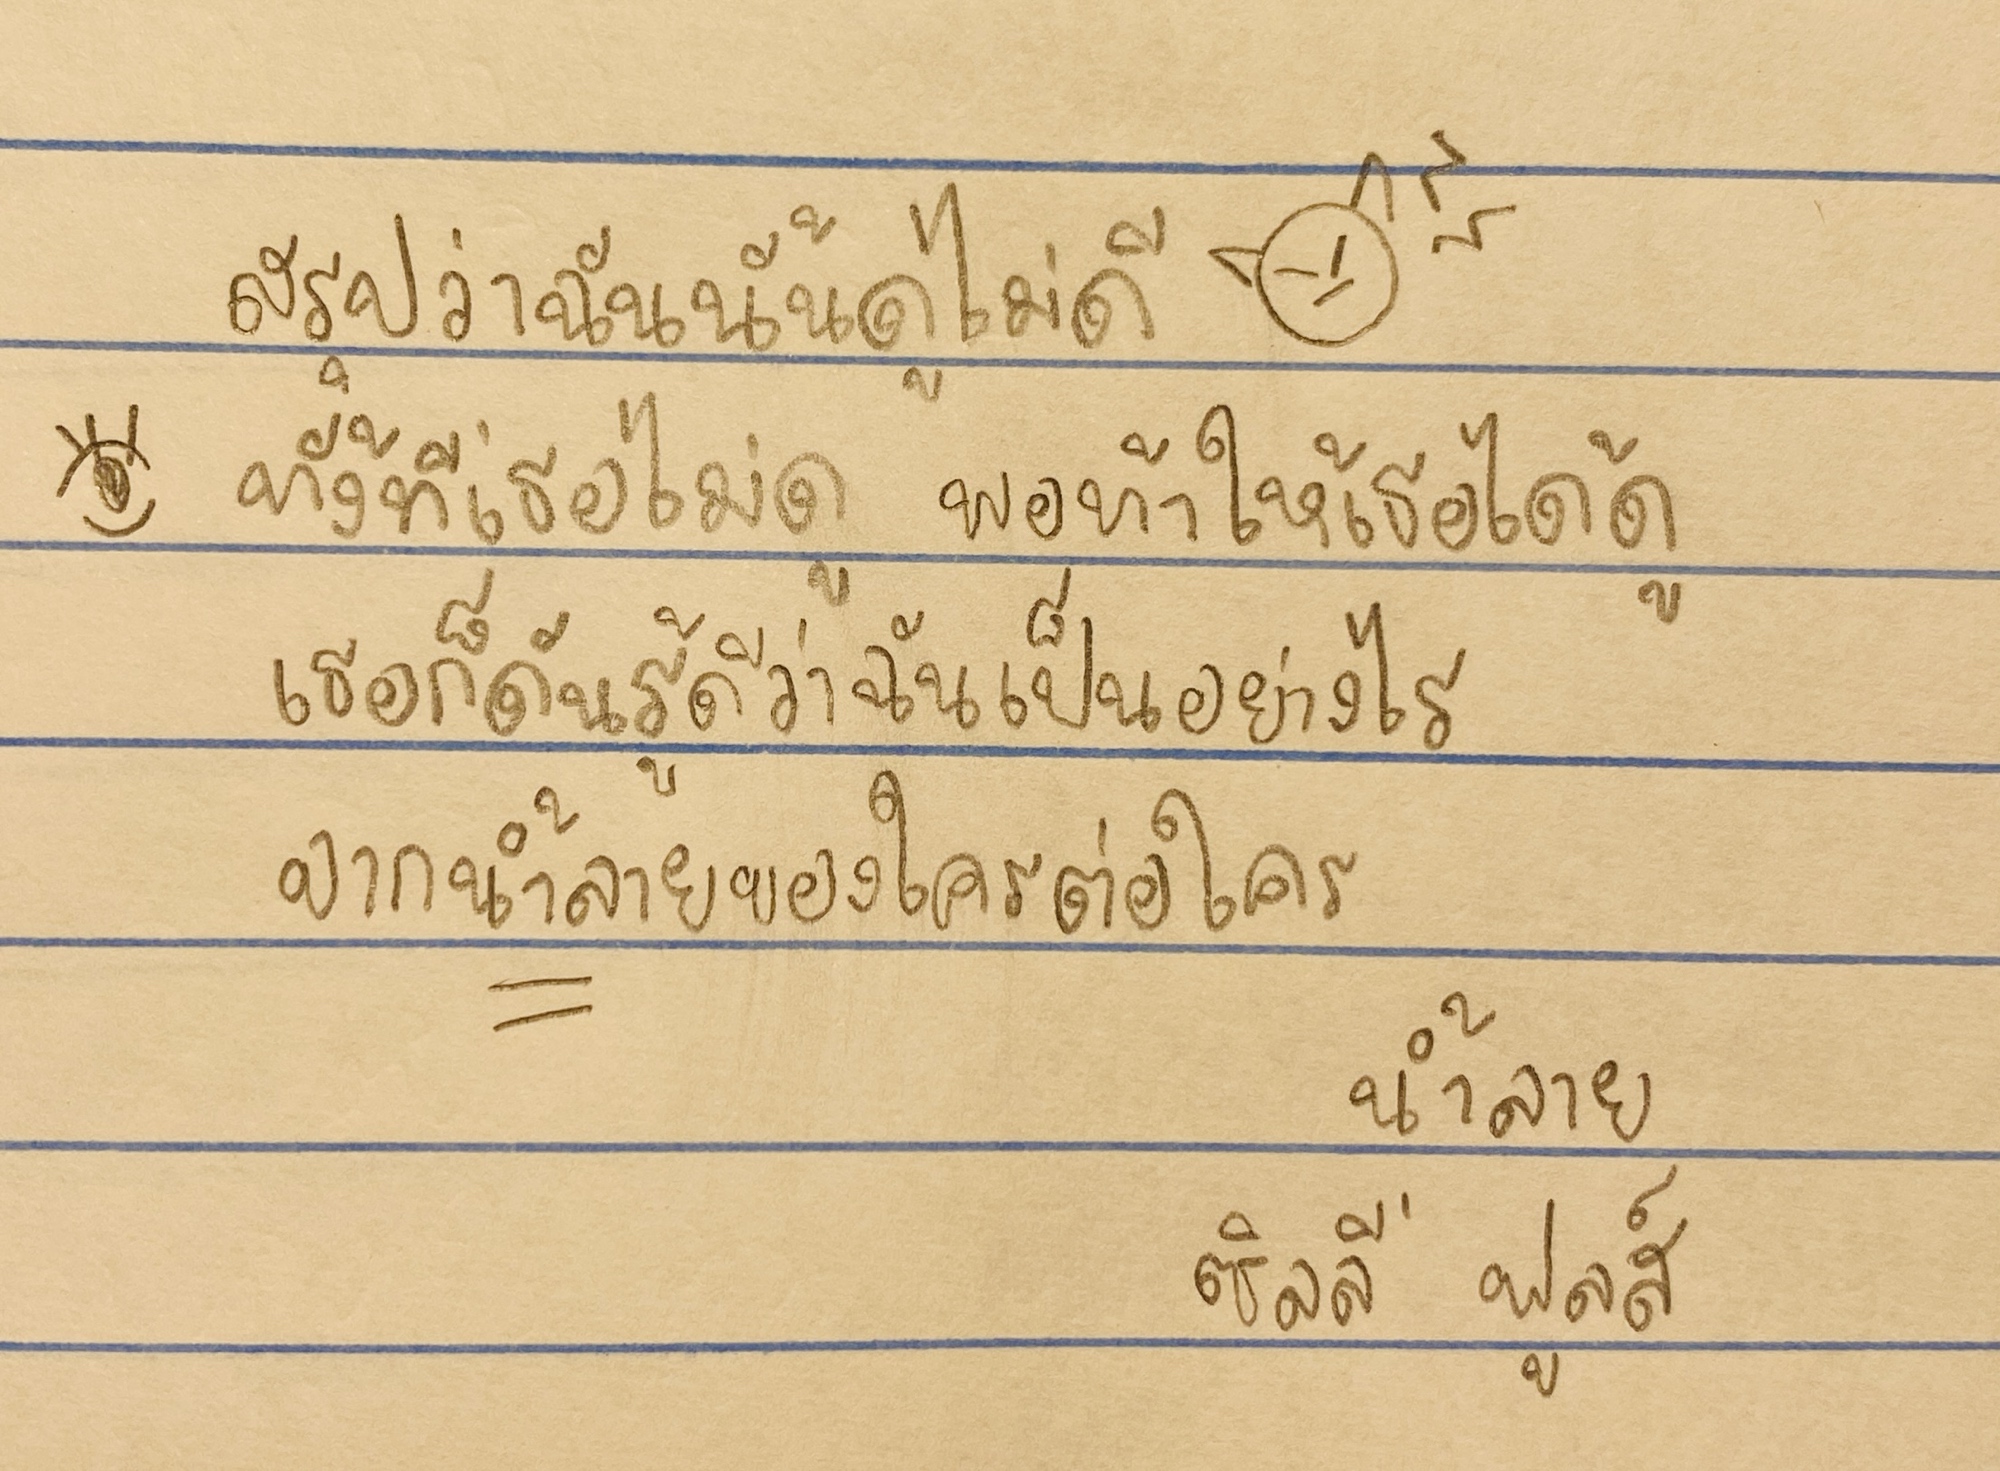 สรุปว่าฉันนั้นดูไม่ดี
ทั้งที่เธอไม่ดู พอท้าให้เธอได้ดู
เธอก็ดันรู้ดีว่าฉันเป็นอย่างไร
จากน้ำลายของใครต่อใคร
น้ำลาย
ซิลลี่ ฟูลส์